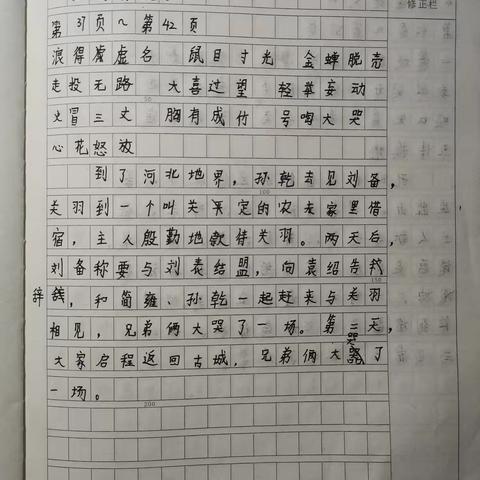 修正栏
第37页～第42页
浪得虚名 鼠目寸光 金蝉脱壳
走投无路 大喜过望 轻举妄动
火冒三丈 胸有成竹 号啕大哭
心花怒放
到了河北地界，孙乾去见刘备，
关羽到一个叫关平定的农夫家里借
宿，主人殷勤地款待关羽。两天后，
刘备称要与刘表结盟，向袁绍告
辞，和简雍、孙乾一起赶来与关羽
相见，兄弟俩大哭了一场。第二天，
大家启程返回古城，兄弟俩大哭了
一场。
100
150
200